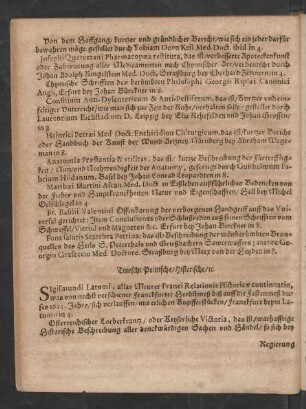 Von dem Hoffgang/ kurtzer und gründlicher Bericht/ wie sich ein jeder darfür
bewahren möge gestellet durch Tobiam Dorn Med. Doct. ibid in 4.
Josephi Quercetani Pharmacopæa restituta, das ist/ verbesserte Apoteckenkunst
oder Zubereitung aller Medicamenten nach Chymischer Art/ verdeutscht durch
Johan Adolph Ringelstein Med. Doct. Straßburg bey Eberhard Zetzner/ in 4.
Chymische Schrifften des berühmbten Philosophi Georgii Riplæi Canonici
Angli, Erfurt bey Johan Birckner in 8.
Consilium Anti-Dysentericum & Anti-Pestiferum, das ist/ kurtzer und ein-
feltiger Unterricht/ wie man sich zur Zeit der Ruhr/ verhalten solle; gestellet durch
Laurentium Eichstadium D. Leipzig bey Elia Rehefelden und Johan Grossen/
in 8.
Heinrici Petræi Med Doct. Enchiridion Chirurgicum, das ist/ kurtzer Bericht
oder Handbuch der Kunst der Wund Artzney/ Nürnberg bey Abraham Wage-
man in 8.
Anatomiæ Præstantia & utilitas, das ist/ kurtze Beschreibung der fürtrefflig-
keit/ Nutz und Nohtwendigkeit der Anatomy, gestellet durch Guilhelmum Fa-
bricium Hildanum. Basel bey Johan Conrad Leoparden in 8.
Matthæi Martini Ascan. Med. Doct. in Eißleben außführliches Bedencken von
der Fieber und Hauptkranckheiten Natur und Eigenschafften/ Hall bey Michel
Oelschlegel in 4
Fr. Basilii Valentini Offenbarung der verborgenen Handgriff auff das Vni-
versal gerichtet: Item Conclusiones oder Schlußreden auß seinen Schrifften vom
Schweffel/ Vitriol und Magneten &c. Erfurt bey Johan Birckner in 8.
Fons salutis Scatebra Petrina: das ist/ Beschreibung der wündersbahren Brun-
quellen des Heils S. Petersthals und Grießbachers Sawerwassers; autore Ge-
orgio Graseccio Med. Doctore. Straßburg bey Marx von der Heyden in 8.
Teutsche Politische/ Historische/ &c.
Sigismundi Latomi, alias Meurer Franci Relationis Historicæ continuatio,
was von nechst verschiener Franckfurter Herbstmeß biß auff die Fastenmeß die-
ses 1633. Jahrs/ sich verlauffen/ mit etlichen Kupfferstücken/ Franckfurt beym La-
tomo in 4.
Osterreichischer Lorberkrantz/ oder Keyserliche Victoria, das ist/ warhafftige
Historische Beschreibung aller denckwürdigen Sachen und Händel/ so sich bey
Regierung